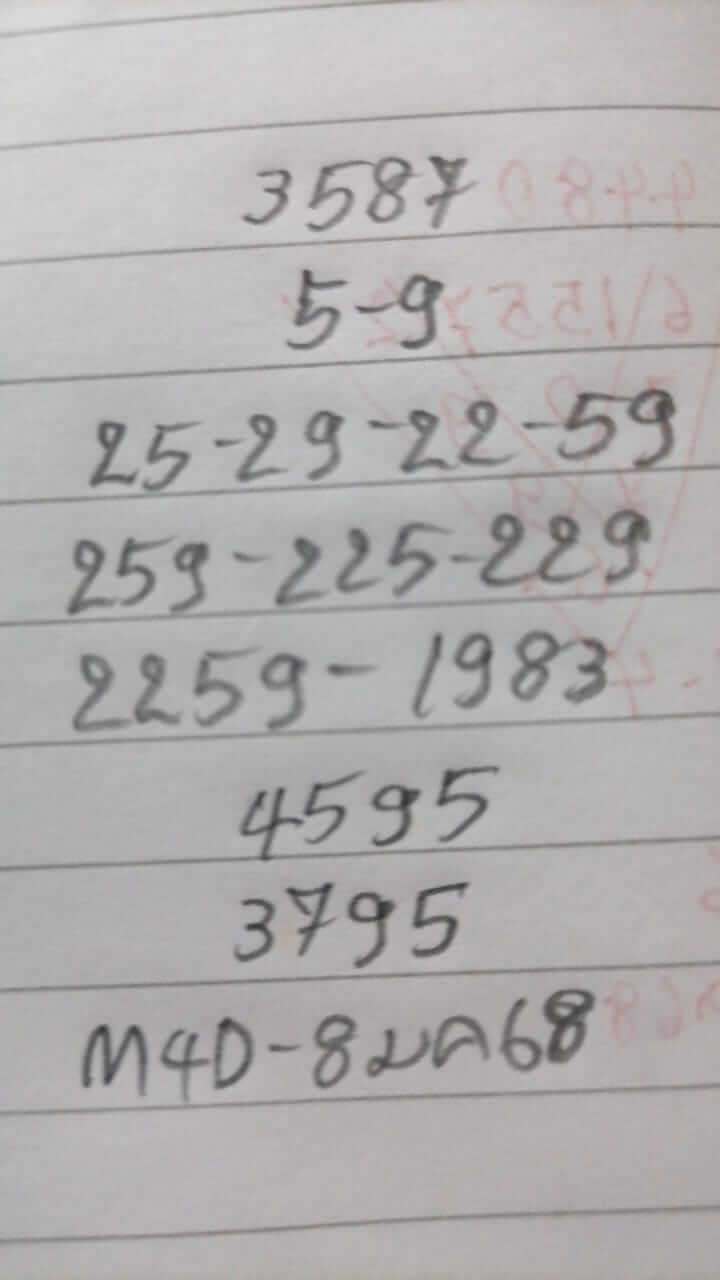 3587
5-9
25-29-22-59
259-225-229
2259-1983
4595
3795
M4D-8มค68